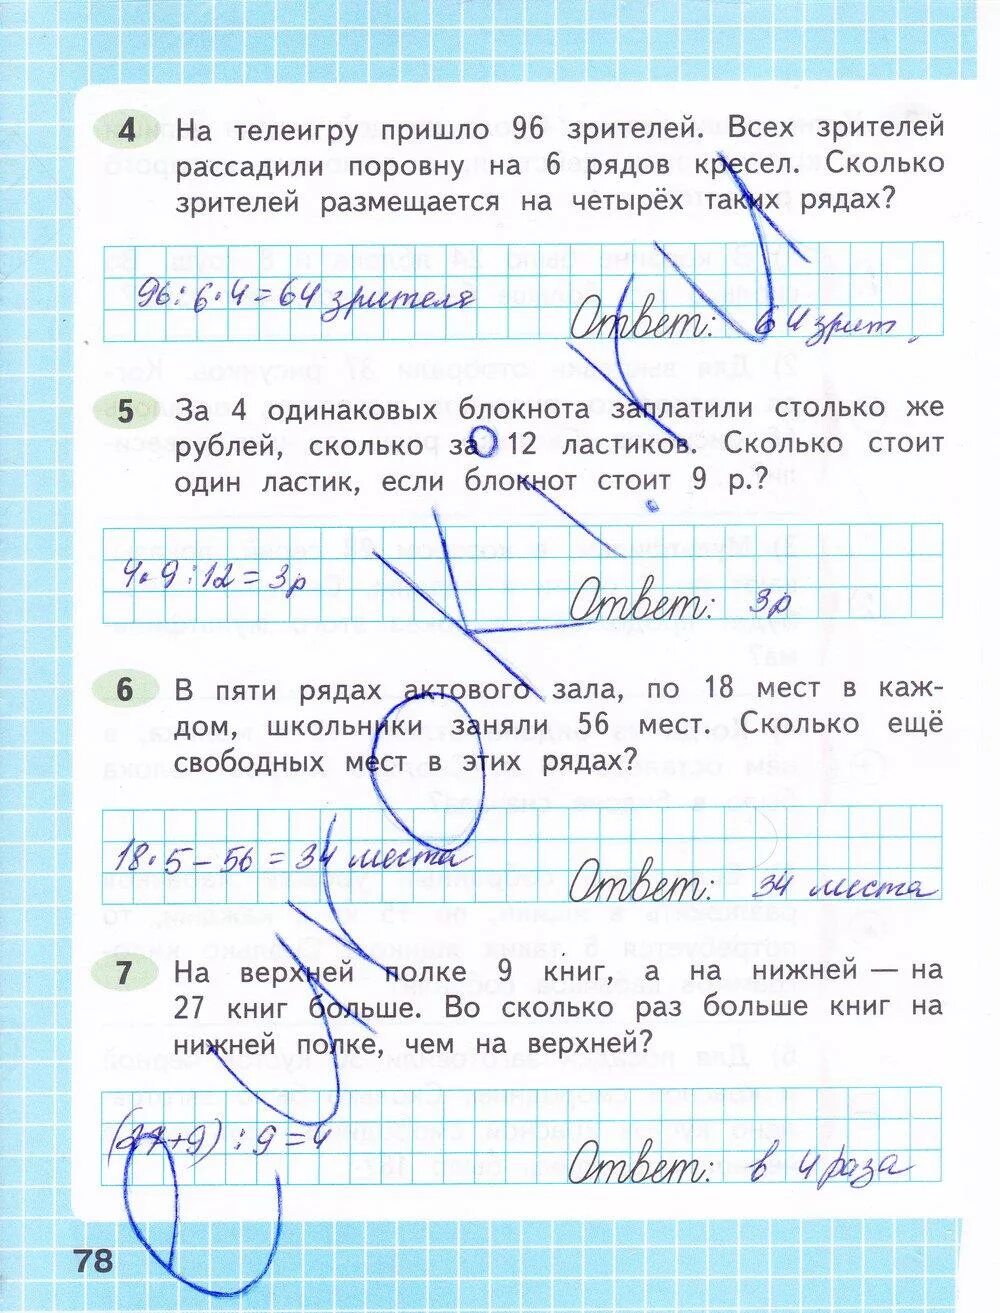 4 На телеигру пришло 96 зрителей. Всех зрителей
рассадили поровну на 6 рядов кресел. Сколько
зрителей размещается на четырёх таких рядах?
96:6·4=64 зрителя
Ответ: 64 зрит
5 За 4 одинаковых блокнота заплатили столько же
рублей, сколько за 12 ластиков. Сколько стоит
один ластик, если блокнот стоит 9 р.?
4·9:12=3р
Ответ: 3р
6 В пяти рядах актового зала, по 18 мест в каж-
дом, школьники заняли 56 мест. Сколько ещё
свободных мест в этих рядах?
18·5-56=34 места
Ответ: 34 места
7 На верхней полке 9 книг, а на нижней — на
27 книг больше. Во сколько раз больше книг на
нижней полке, чем на верхней?
(27+9):9=4
Ответ: в 4 раза
78